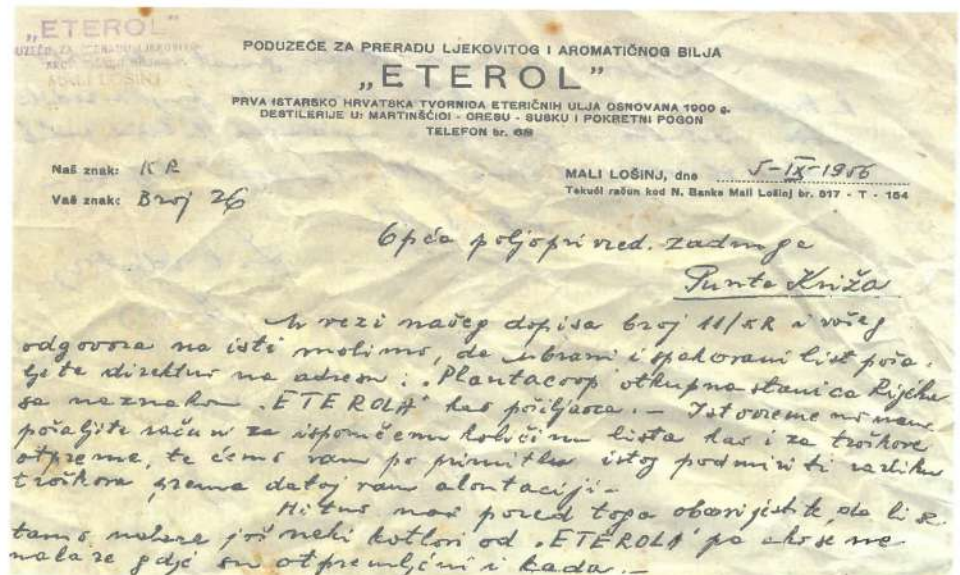 „ETEROL"
MALI LOŠINJ
PODUZEĆE ZA PRERADU LJEKOVITOG I AROMATIČNOG BILJA
„ETEROL"
PRVA ISTARSKO HRVATSKA TVORNICA ETERIČNIH ULJA OSNOVANA 1900 g.
DESTILERIJE U: MARTINŠĆICI - CRESU - SUSKU I POKRETNI POGON
TELEFON br. 68
Naš znak: KR
Vaš znak: Broj 26
MALI LOŠINJ, dne 5-IX-1956
Tekući račun kod N. Banke Mali Lošinj br. 517 - T - 154
Opća poljoprivred. zadruga
Punta Križa
U vezi našeg dopisa broj 11/KR i vašeg
odgovora na isti molimo, da ubrani i spakovani list poša-
ljete direktno na adresu: „Plantacoop" otkupna stanica Rijeka
sa naznakom „ETEROLA" kao pošiljaoca. — Istovremeno nam
pošaljite račun za isporučenu količinu lista kao i za troškove
otpreme, te ćemo vam po primitku istog podmiriti razliku
troškova prema datoj vam akontaciji. —
Hitno nas pored toga obavijestite, da li se
tamo nalaze još neki kotlovi od „ETEROLA" pa ako se ne
nalaze gdje su otpremljeni i kada. —